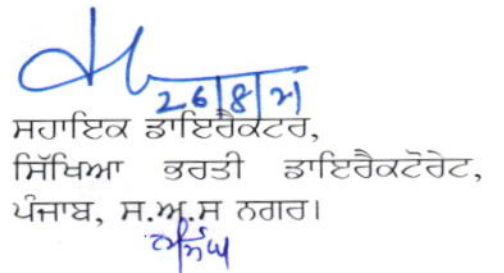 26/8/21
ਸਹਾਇਕ ਡਾਇਰੈਕਟਰ,
ਸਿੱਖਿਆ ਭਰਤੀ ਡਾਇਰੈਕਟੋਰੇਟ,
ਪੰਜਾਬ, ਸ.ਅ.ਸ ਨਗਰ।